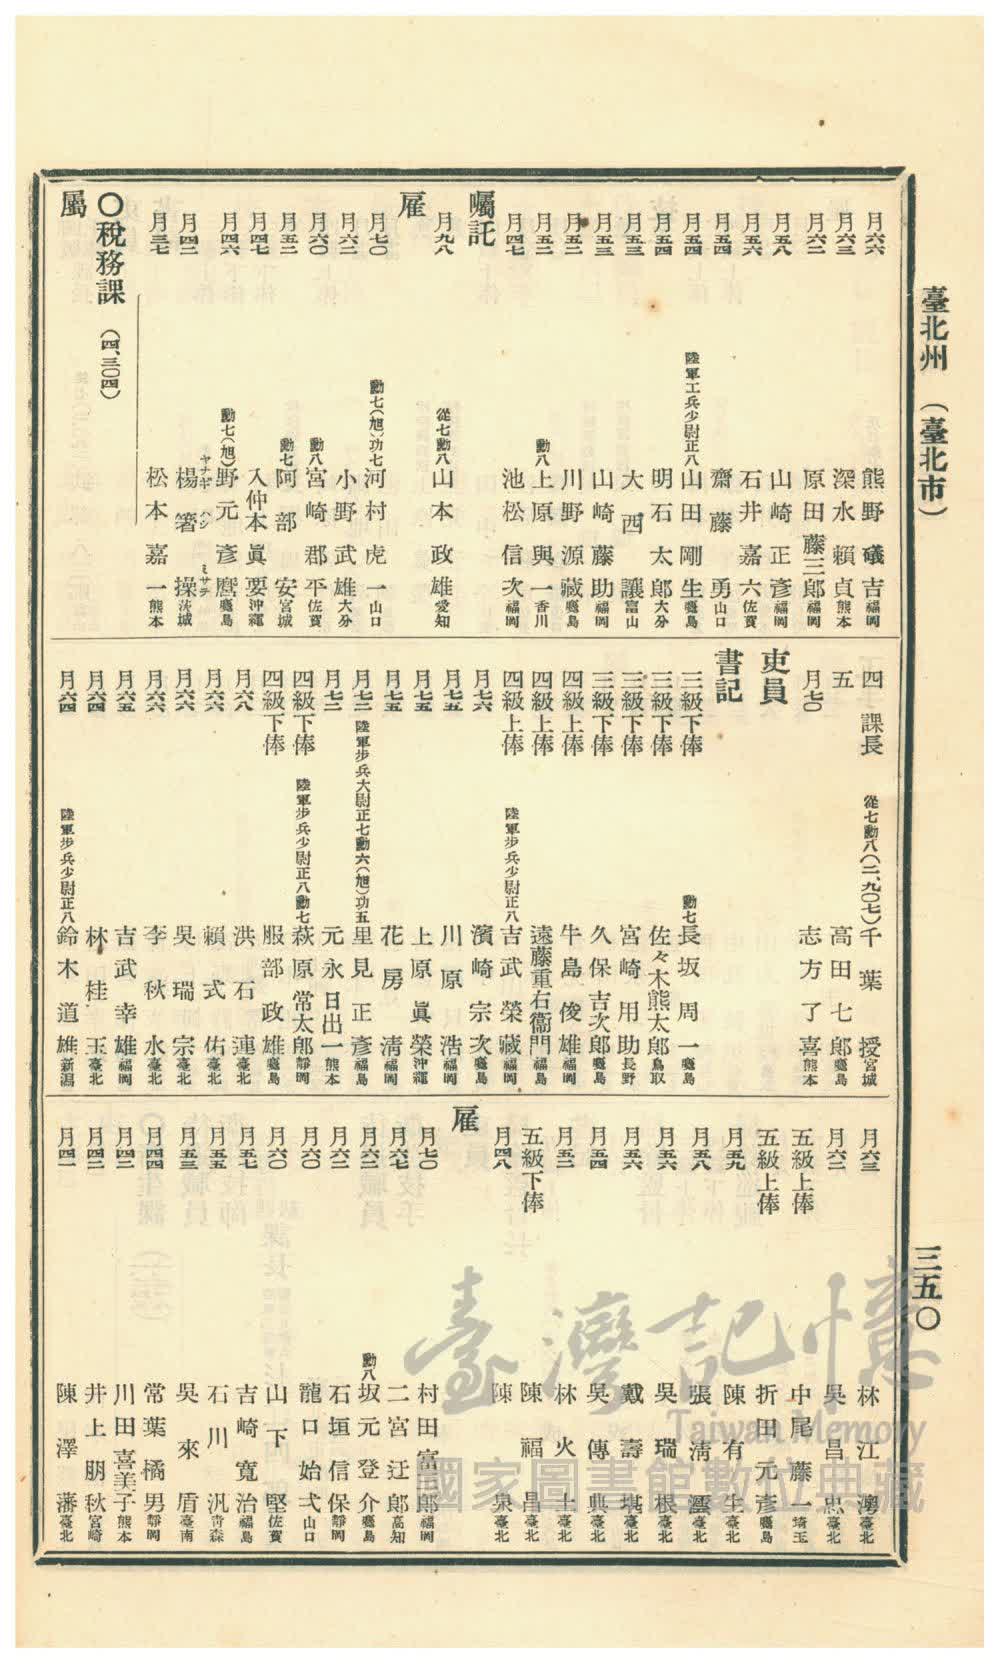 臺北州（臺北市）
三五〇
月六六 熊野礒吉 福岡
月六三 深水賴貞 熊本
月六二 原田藤三郎 福岡
月五八 山崎正彥 福岡
月五六 石井嘉六 佐賀
月五四 齋藤勇 山口
月五四 陸軍工兵少尉正八 山田剛生 鹿兒島
月五四 明石太郎 大分
月五三 大西讓 富山
月五三 山崎藤助 福岡
月五二 川野源藏 鹿兒島
月五二 勳八 上原與一 香川
月四七 池松信次 福岡
囑託
月九八 從七勳八 山本政雄 愛知
雇
月七〇 勳七(旭)功七 河村虎一 山口
月六二 小野武雄 大分
月六〇 勳八 宮崎郡平 佐賀
月五二 勳七 阿部安 宮城
月四七 入仲本眞要 沖繩
月四六 勳七(旭) 野元彥麿 鹿兒島
月四二 楊箸操 ヤナギハシ ミサヲ 茨城
月三七 松本嘉一 熊本
〇稅務課（四、三〇四）
屬
四 課長 從七勳八(二、九〇七) 千葉授 宮城
五 高田七郎 鹿兒島
月七〇 志方了喜 熊本
吏員
書記
三級下俸 勳七 長坂周一 鹿兒島
三級下俸 佐々木熊太郎 鳥取
三級下俸 宮崎用助 長野
三級下俸 久保吉次郎 鹿兒島
四級上俸 牛島俊雄 福岡
四級上俸 遠藤重右衞門 福島
四級上俸 陸軍步兵少尉正八 吉武榮藏 福岡
月七六 濱崎宗次 鹿兒島
月七五 川原浩 福岡
月七五 上原眞榮 沖繩
月七五 花房淸 福岡
月七二 陸軍步兵大尉正七勳六(旭)功五 里見正彥 福島
月七二 元永日出一 熊本
四級下俸 陸軍步兵少尉正八勳七 萩原常太郎 靜岡
四級下俸 服部政雄 鹿兒島
月六八 洪石連 臺北
月六六 賴式佑 臺北
月六六 吳瑞宗 臺北
月六六 李秋水 臺北
月六五 吉武幸雄 福岡
月六四 林桂玉 臺北
月六四 陸軍步兵少尉正八 鈴木道雄 新潟
月六三 林江灣 臺北
月六二 吳昌忠 臺北
五級上俸 中尾藤一 埼玉
五級上俸 折田元彥 鹿兒島
月五九 陳有生 臺北
月五八 張淸 臺北
月五六 吳瑞根 臺北
月五六 戴壽 臺北
月五四 吳傳典 臺北
月五二 林火土 臺北
五級下俸 陳福昌 臺北
月四八 陳泉 臺北
雇
月七〇 村田富三郎 福岡
月六七 二宮迂郎 高知
月六二 勳八 坂元登介 鹿兒島
月六二 石垣信保 靜岡
月六〇 龍口始弌 山口
月六〇 山下堅 佐賀
月五七 吉崎寬治 福島
月五五 石川汎 靑森
月五三 吳來盾 臺南
月四四 常葉橘男 靜岡
月四二 川田喜美子 熊本
月四二 井上朋秋 宮崎
月四一 陳澤藩 臺北
臺灣記憶
Taiwan Memory
國家圖書館數位典藏